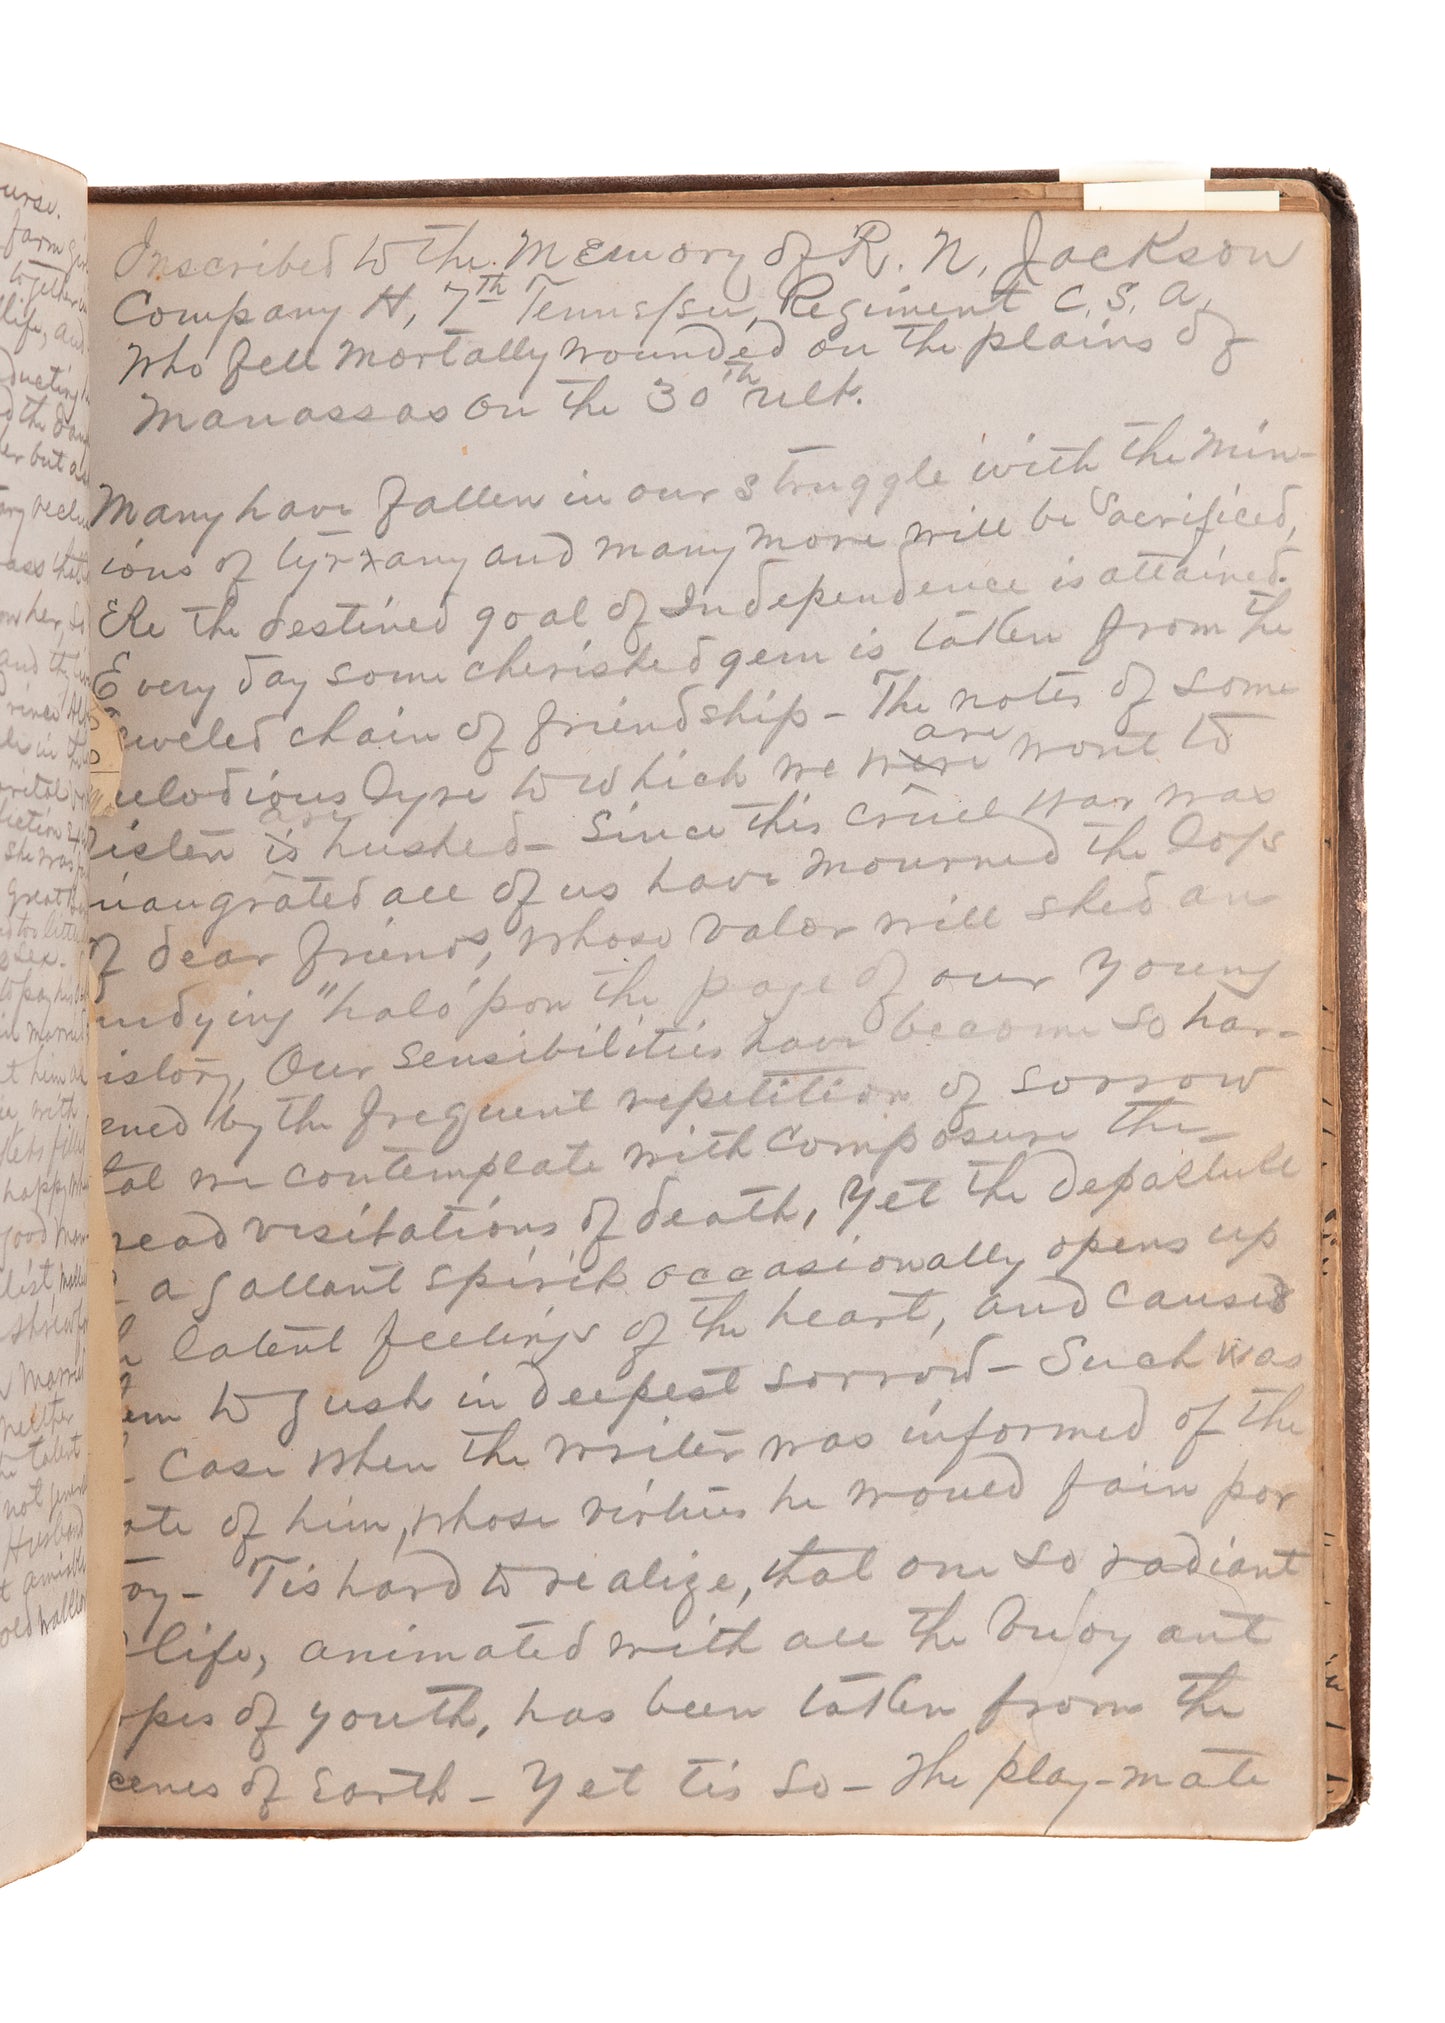 urse.
farm girl
together in
life, and
ducting
d the
er but a
ary reclu
ass that
on her, so
and the
river
in the
great
too little
Sex.
to pay his
married
t him as
with
happy
good
Marri
Neither
talent
not gener
Husband
old
Inscribed to the Memory of R. N. Jackson
Company H, 7th Tennessee, Regiment C. S. A.,
Who fell mortally wounded on the plains of
Manassas on the 30th ult.
Many have fallen in our struggle with the Min-
ions of tyrxany and many more will be Sacrificed,
Ere the destined goal of Independence is attained.
Every day some cherished gem is taken from the
eweled chain of friendship - The notes of some
are
elodious lyre to which we were wont to
are
listen is hushed - Since this cruel war was
naugrated all of us have mourned the loss
of dear friends, whose valor will shed an
undying "halo" pon the page of our young
istory, Our sensibilities have become so har-
ened by the frequent repetition of sorrow
tal we contemplate with composure the
read visitations of death, Yet the departure
a gallant spirit occasionally opens up
latent feelings of the heart, and causes
em to gush in deepest sorrow - Such was
case when the writer was informed of the
ate of him, whose virtues he would fain por
ay - Tis hard to realize, that one so radiant
life, animated with all the buoy ant
opes of youth, has been taken from the
cenes of Earth - Yet tis so - The play-mate